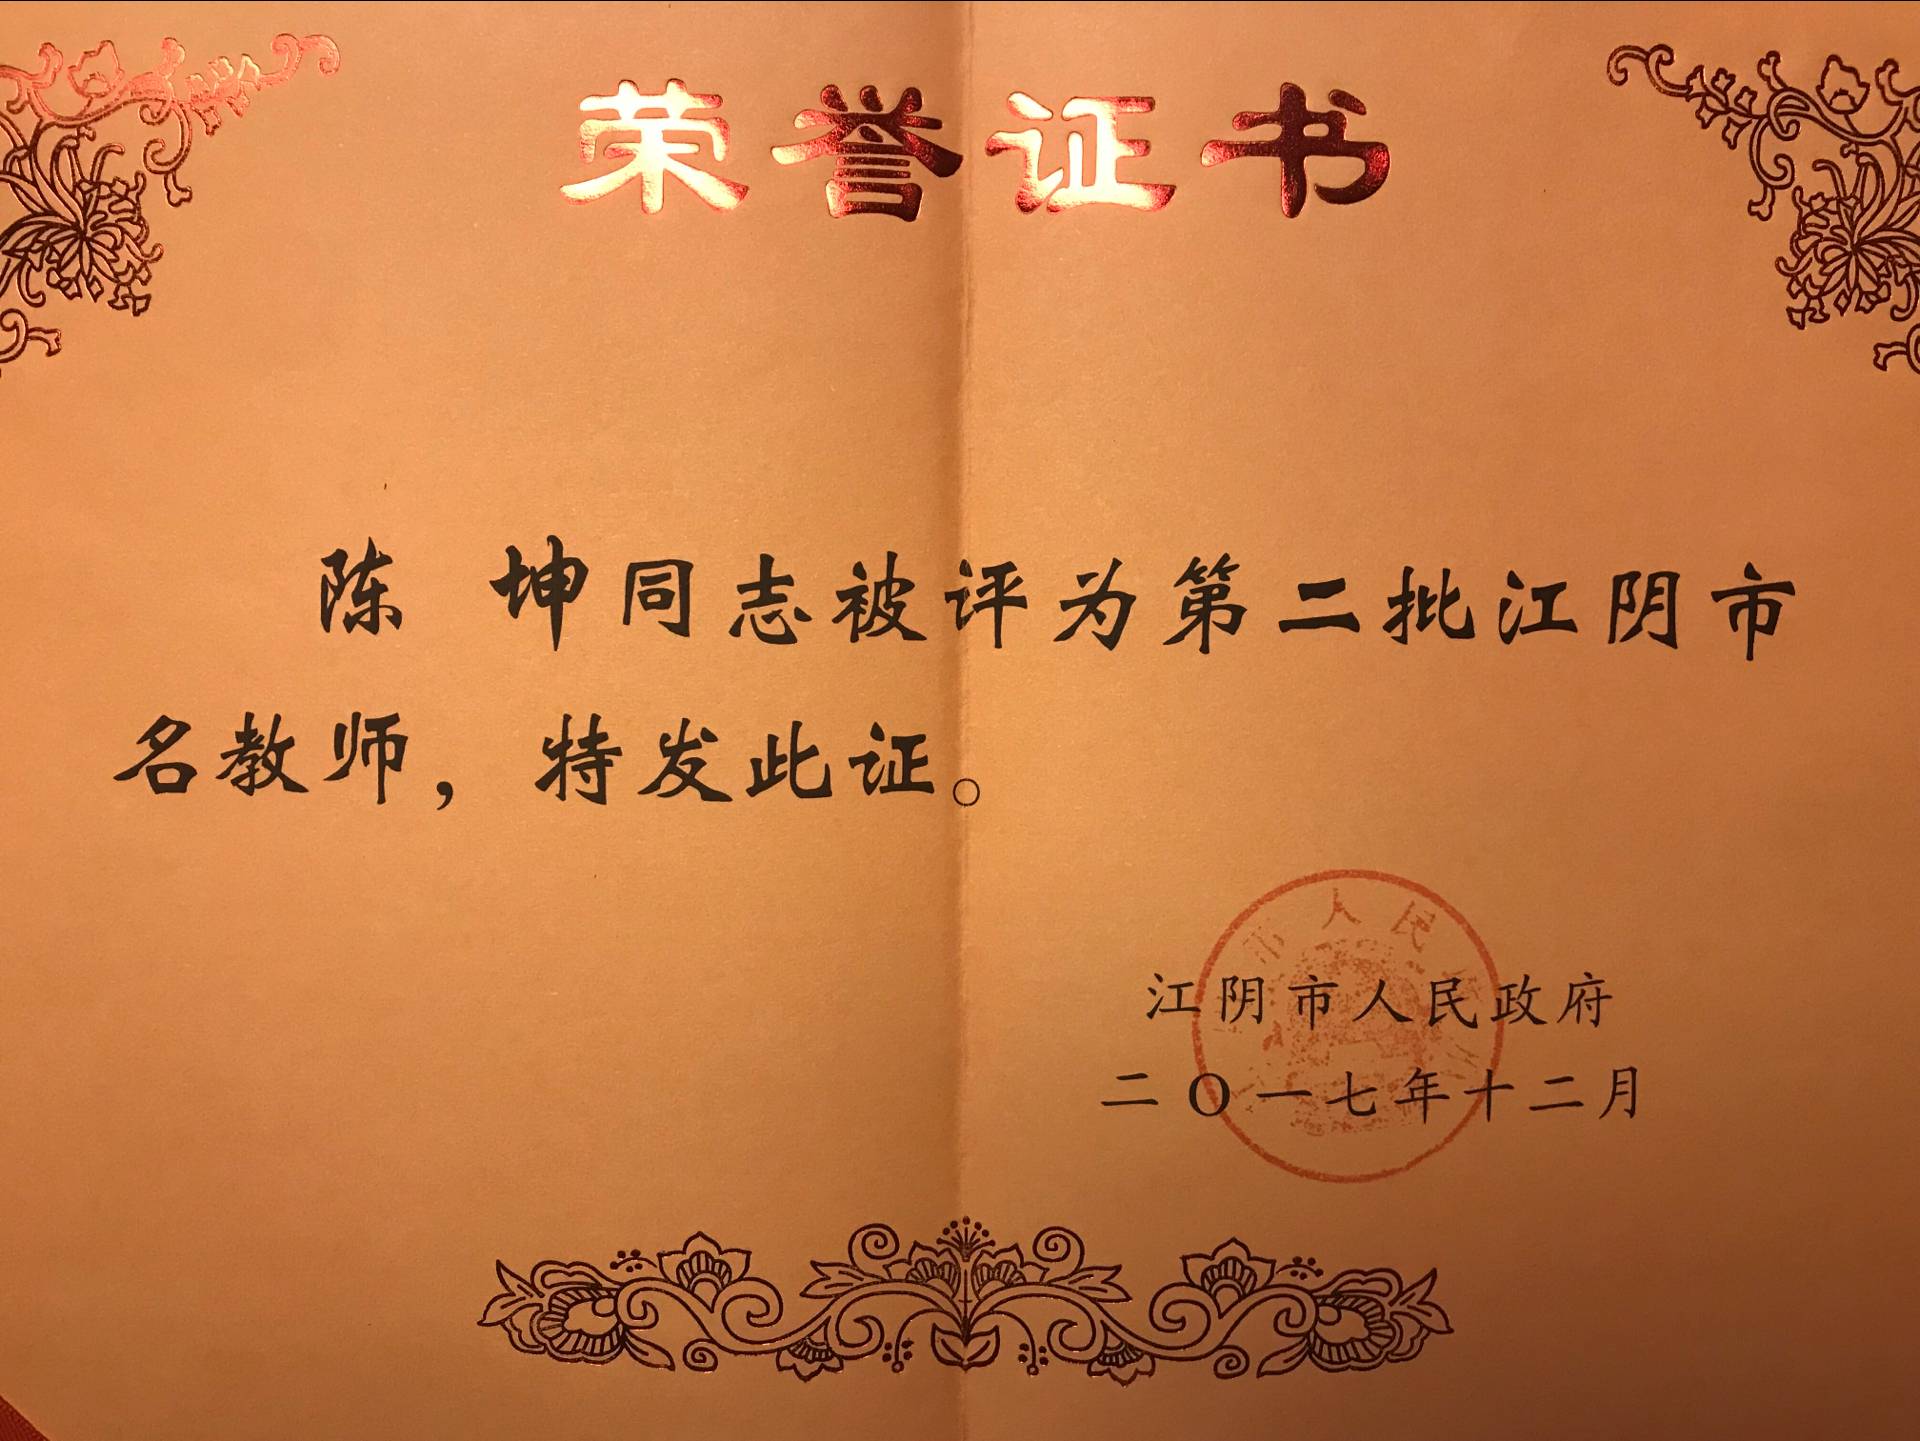 荣誉证书
陈 坤同志被评为第二批江阴市
名教师，特发此证。
市人民
江阴市人民政府
二〇一七年十二月